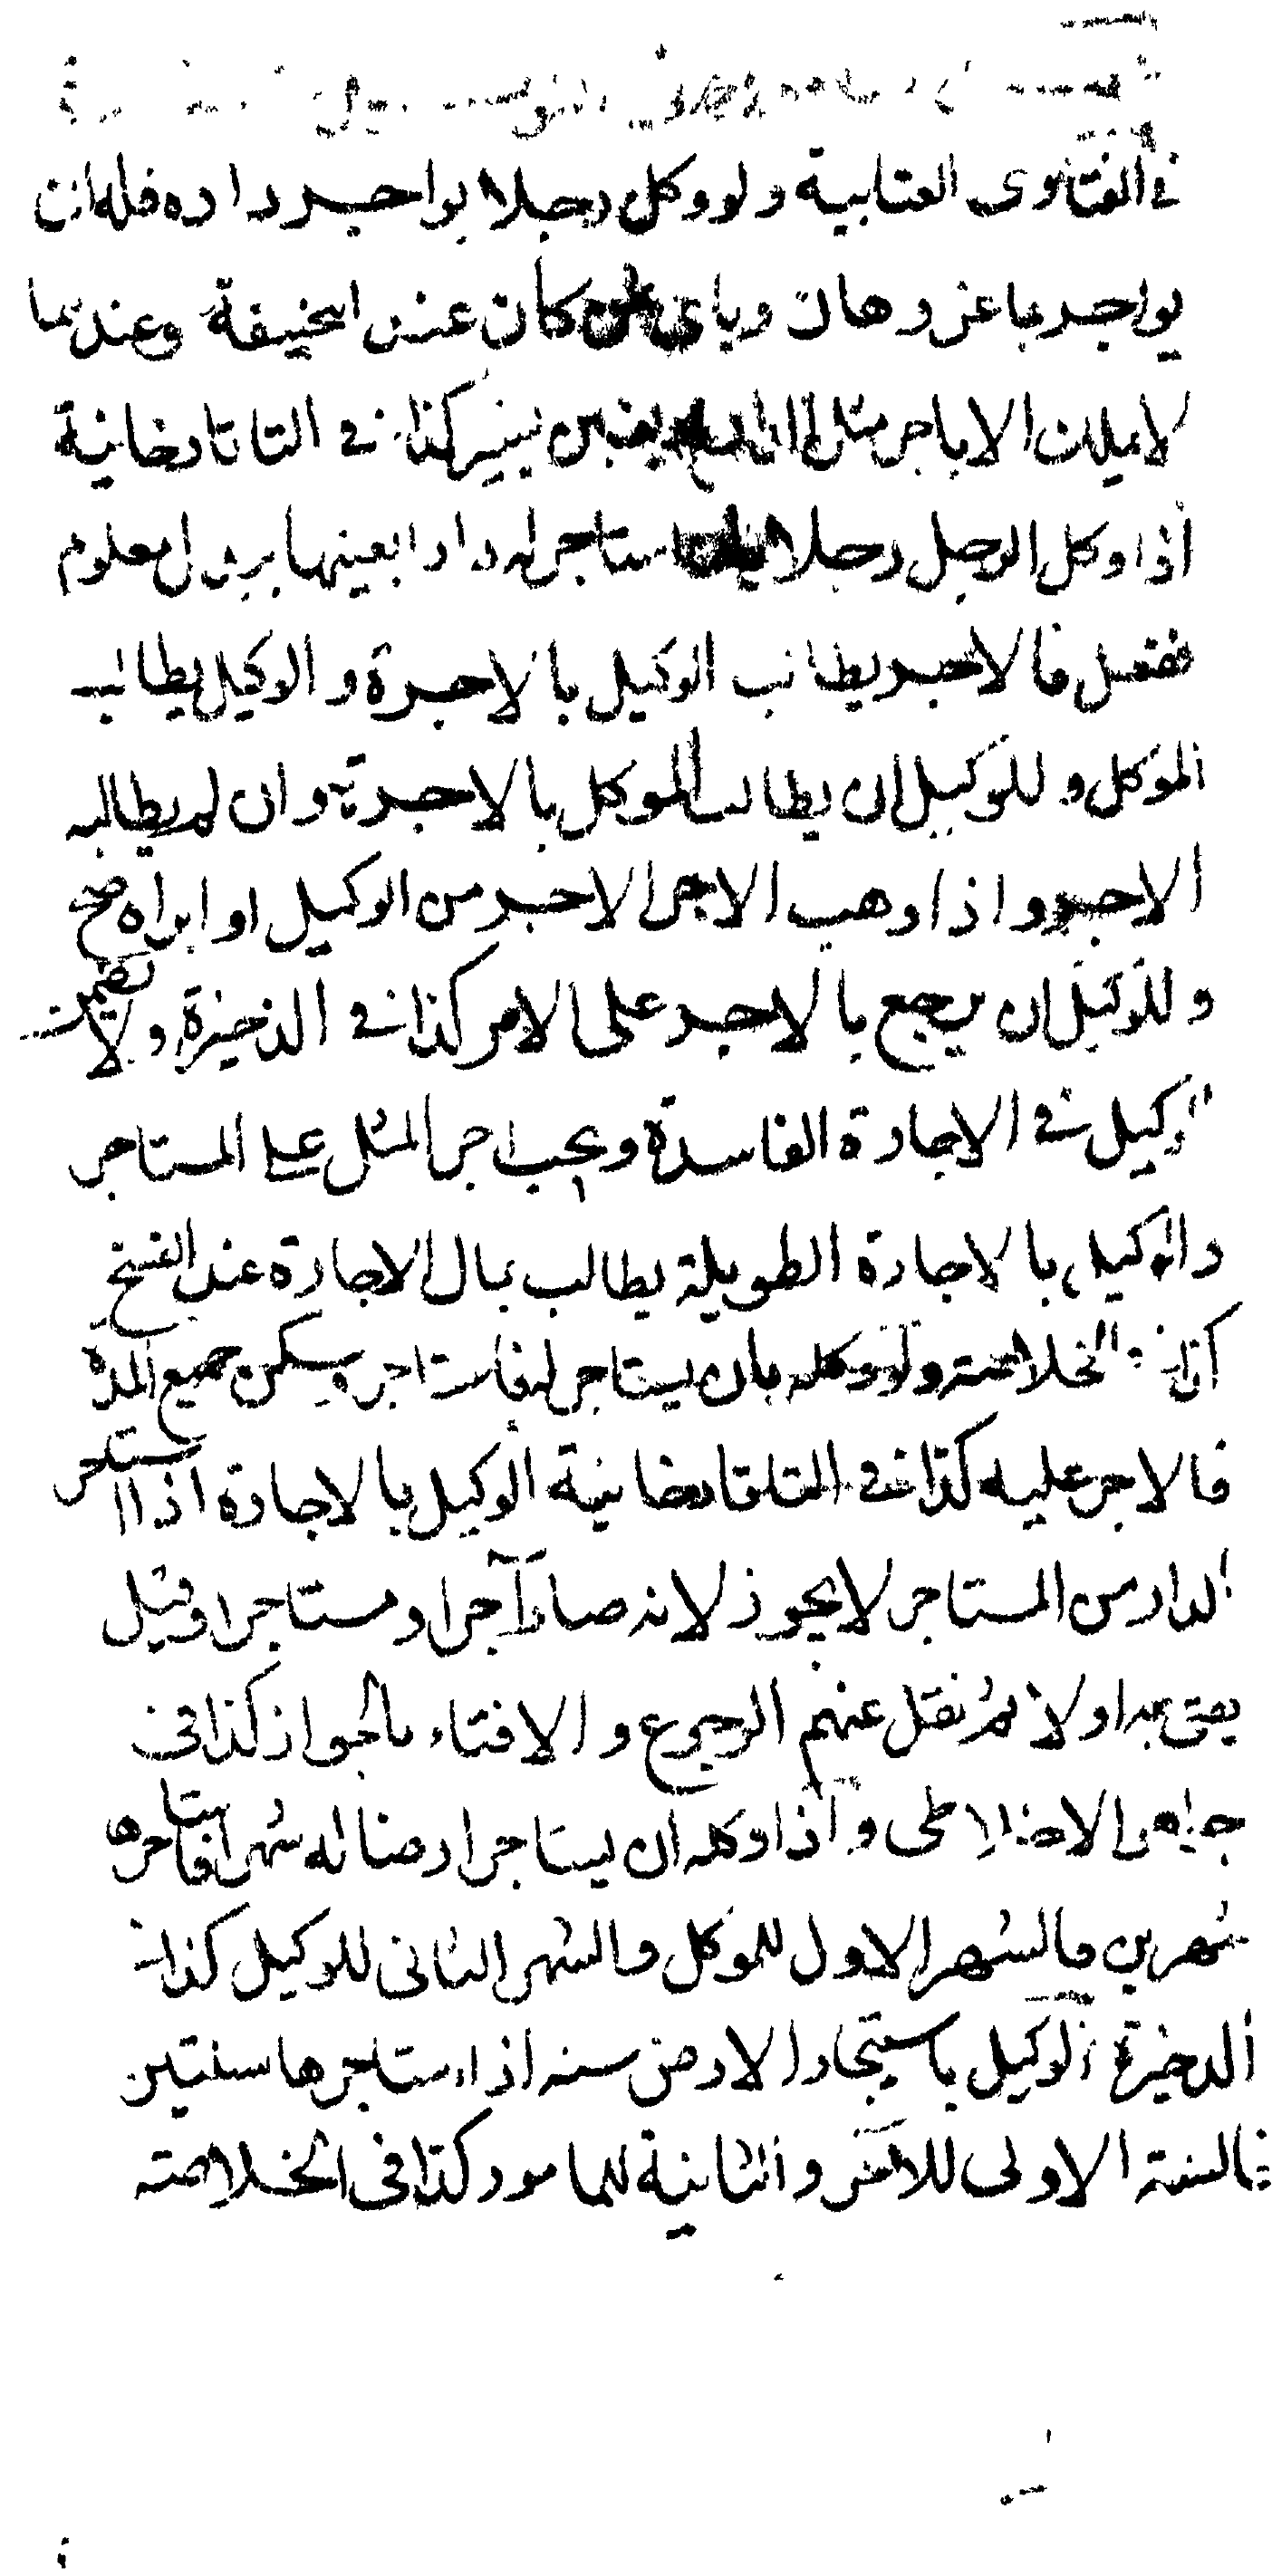 في الفتاوى العتابية ولو وكل رجلا يواجر داره فله ان
يواجر بما عز وهان وباى ثمن كان عند ابيحنيفة وعندهما
لا يملك الا باجر مثل الدار بغبن يسير كذا في التاتارخانية
اذا وكل الرجل رجلا استاجر له دارا بعينها ببدل معلوم
ففعل فالاجر يطالب الوكيل بالاجرة والوكيل يطالب
الموكل وللوكيل ان يطالب الموكل بالاجرة وان لم يطالبه
الاجر واذا وهب الاجر الاجر من الوكيل او ابراه صح
وللوكيل ان يرجع بالاجر على الامر كذا في الذخيرة ولا تضمين
الوكيل في الاجارة الفاسدة ويجب اجر المثل على المستاجر
والوكيل بالاجارة الطويلة يطالب بمال الاجارة عند الفسخ
كذا في الخلاصة ولو وكله بان يستاجر له فاستاجر وسكن جميع المدة
فالاجر عليه كذا في التاتارخانية الوكيل بالاجارة اذا استاجر
الدار من المستاجر لا يجوز لانه صار آجرا ومستاجرا وقيل
يفتى به اولا ثم نقل عنهم الرجوع والافتاء بالجواز كذا في
جواهر الاخلاطى واذا وكله ان يستاجر ارضا له شهرا فاستاجرها
شهرين فالشهر الاول للموكل والشهر الثانى للوكيل كذا في
الذخيرة الوكيل باستيجار الارض سنه اذا استاجرها سنتين
فالسنة الاولى للامر والثانية للمامور كذا في الخلاصة